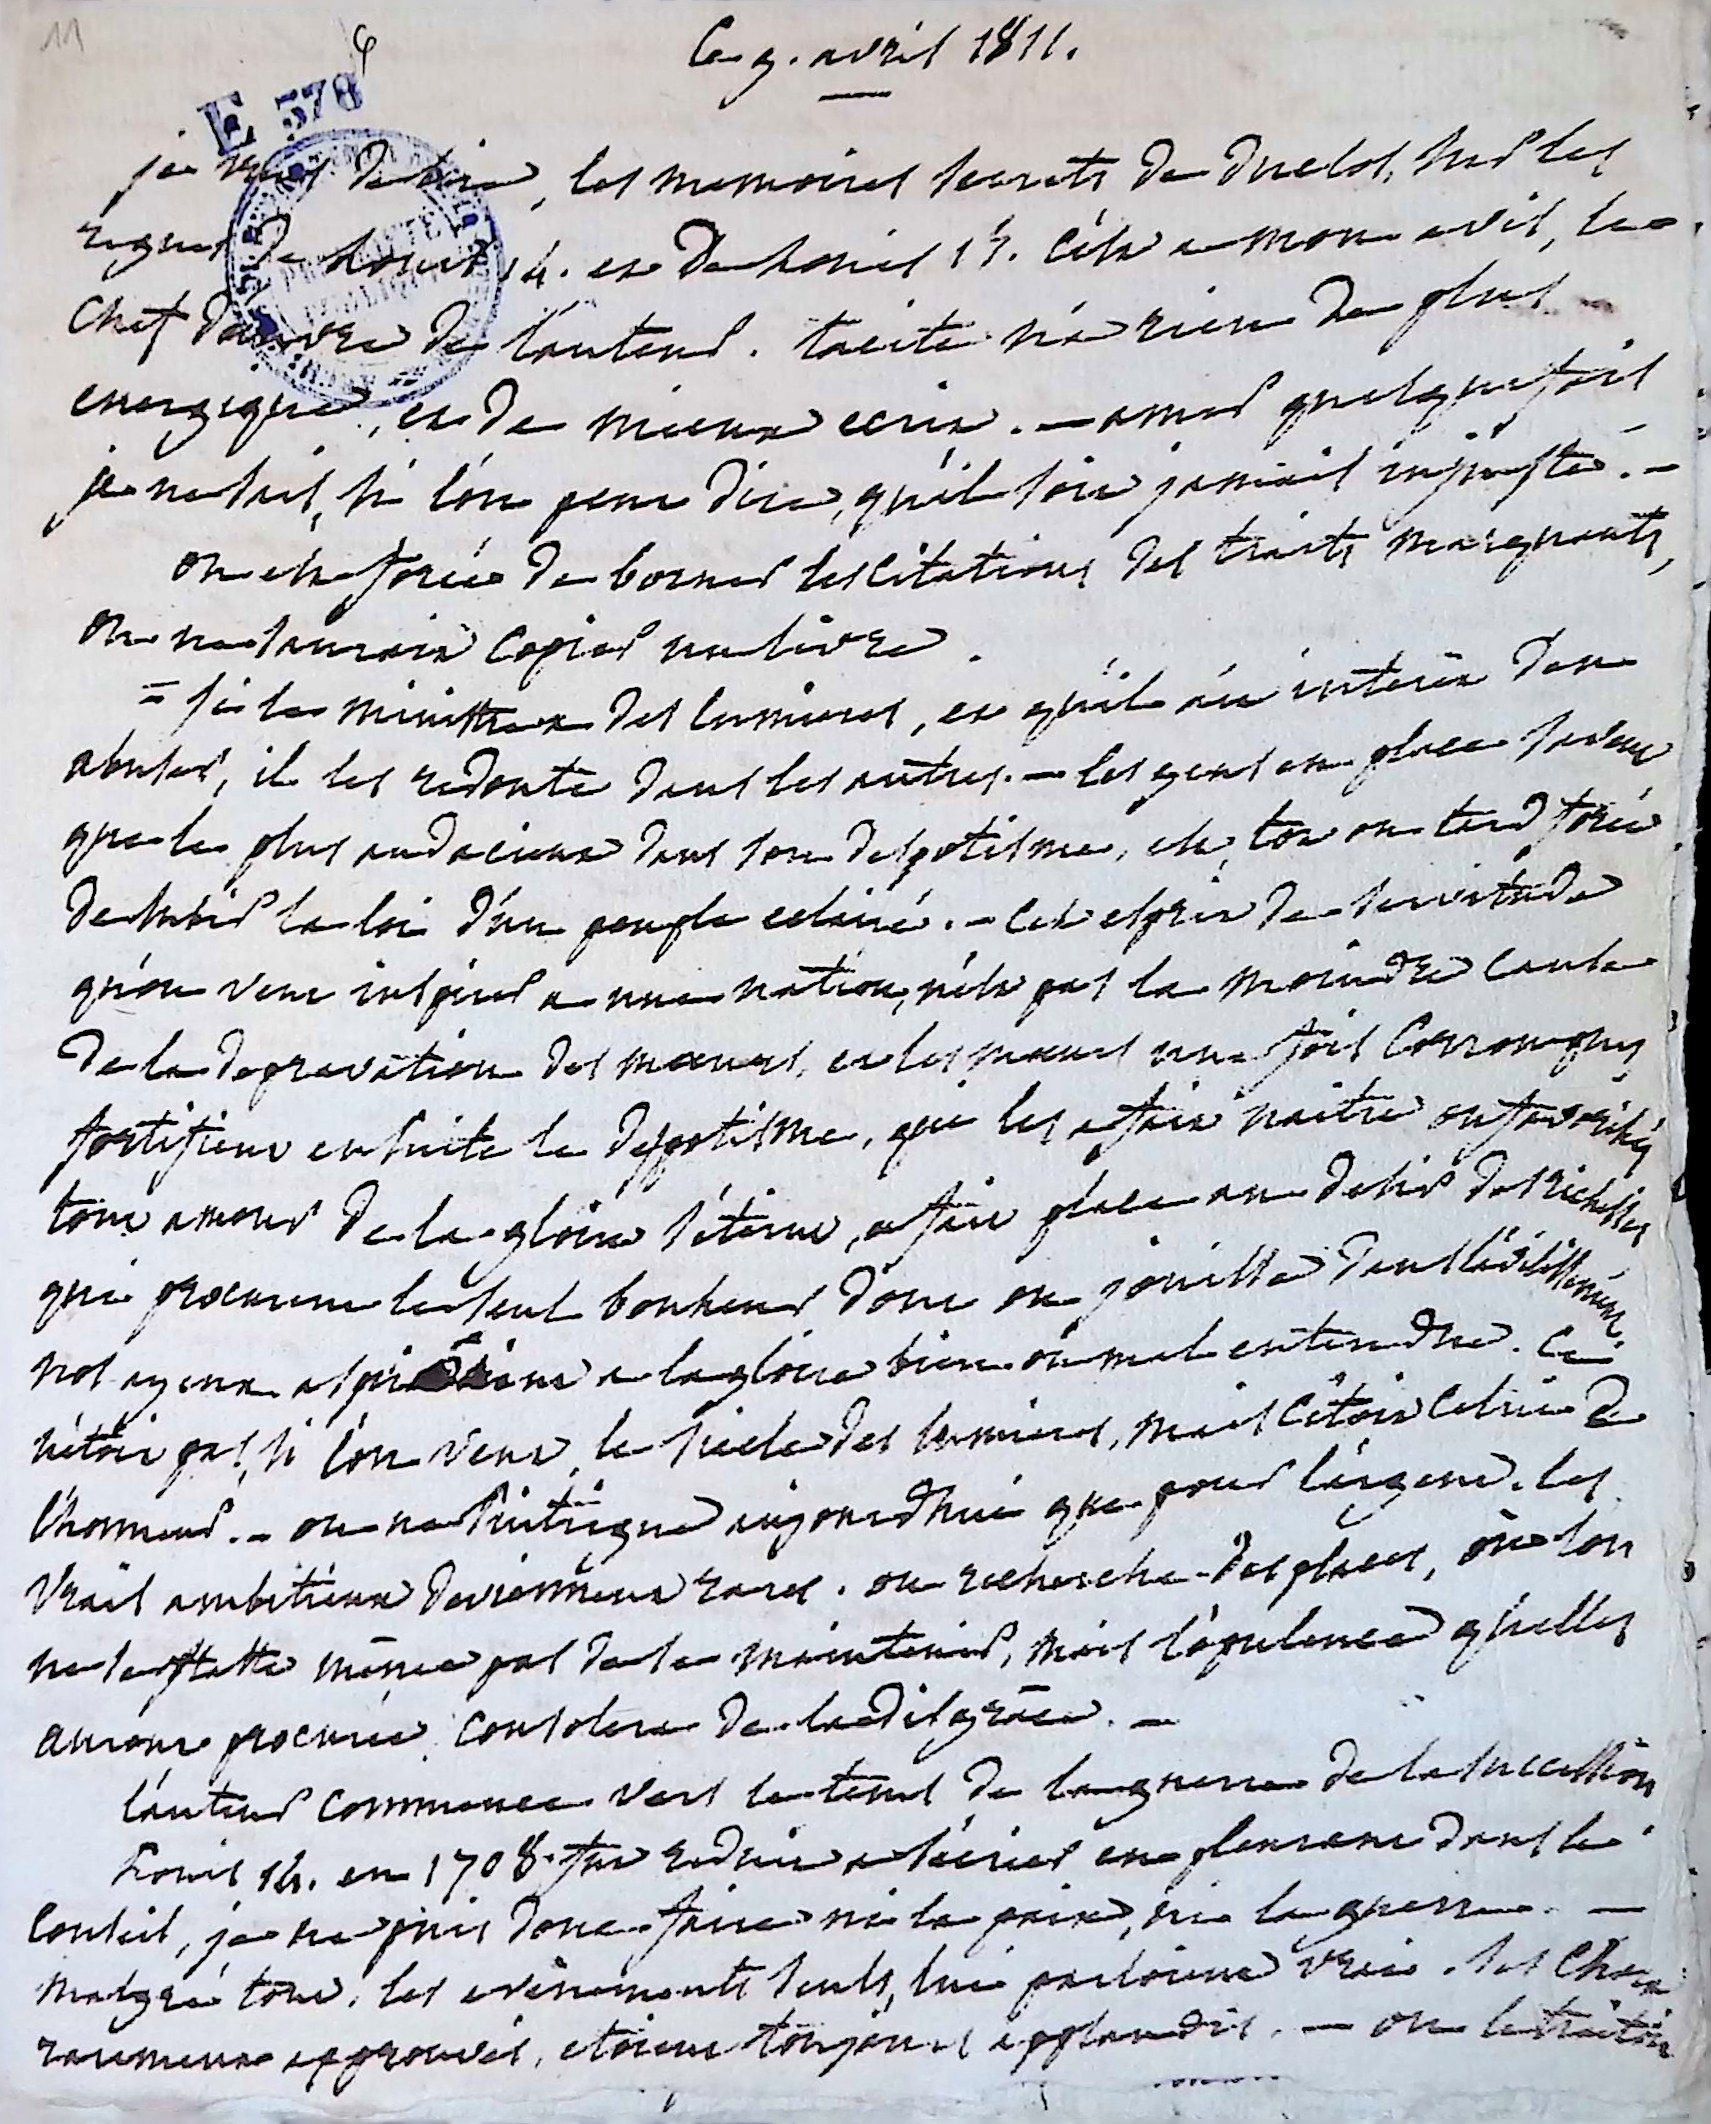 11
E 378
Ce 9. avril 1811.
je viens de lire, les memoires secrets de duclos, sur les
regnes de Louis 14. et de Louis 15. c'est a mon avis, le
chef d'œuvre de l'auteur. tacite n'a rien de plus
energique, et de mieux ecrit. — amer quelquefois
je ne sais, si l'on peut dire, qu'il soit jamais injuste. —
on est forcé de borner les citations des traits marquants,
on ne sauroit copier un livre.
= si le ministre a des lumieres, et qu'il ait intérêt d'en
abuser, il les redoute dans les autres. — les gens en place savent
que le plus audacieux dans son despotisme, est, tot ou tard forcé
de subir la loi d'un peuple eclairé. — cet esprit de servitude
qu'on veut inspirer a une nation, n'est pas la moindre cause
de la depravation des mœurs, et les mœurs une fois corrompues
fortifient ensuite le despotisme, qui les a fait naitre ou favorisées
tout amour de la gloire s'éteint, et fait place au desir des richesses
qui procurent le seul bonheur dont on jouisse dans l'avilissement.
nos ayeux aspiroient a la gloire bien ou mal entendue. ce
n'étoit pas, si l'on veut, le siecle des lumieres, mais c'étoit celui de
l'honneur. — on ne s'intrigue aujourdhui que pour l'argent. les
vrais ambitieux deviennent rares. on recherche des places, où l'on
ne se flatte même pas de se maintenir, mais l'opulence qu'elles
auront procurée consolera de la disgrâce. —
l'auteur commence vers le tems de la guerre de la succession
Louis 14. en 1708. fut reduit a s'écrier en pleurant dans le
conseil, je ne puis donc faire ni la paix, ni la guerre. —
malgré tout, les evénements seuls, lui parloient vrai. ses choix
rarement approuvés, etoient toujours applaudis. — on le traitoit